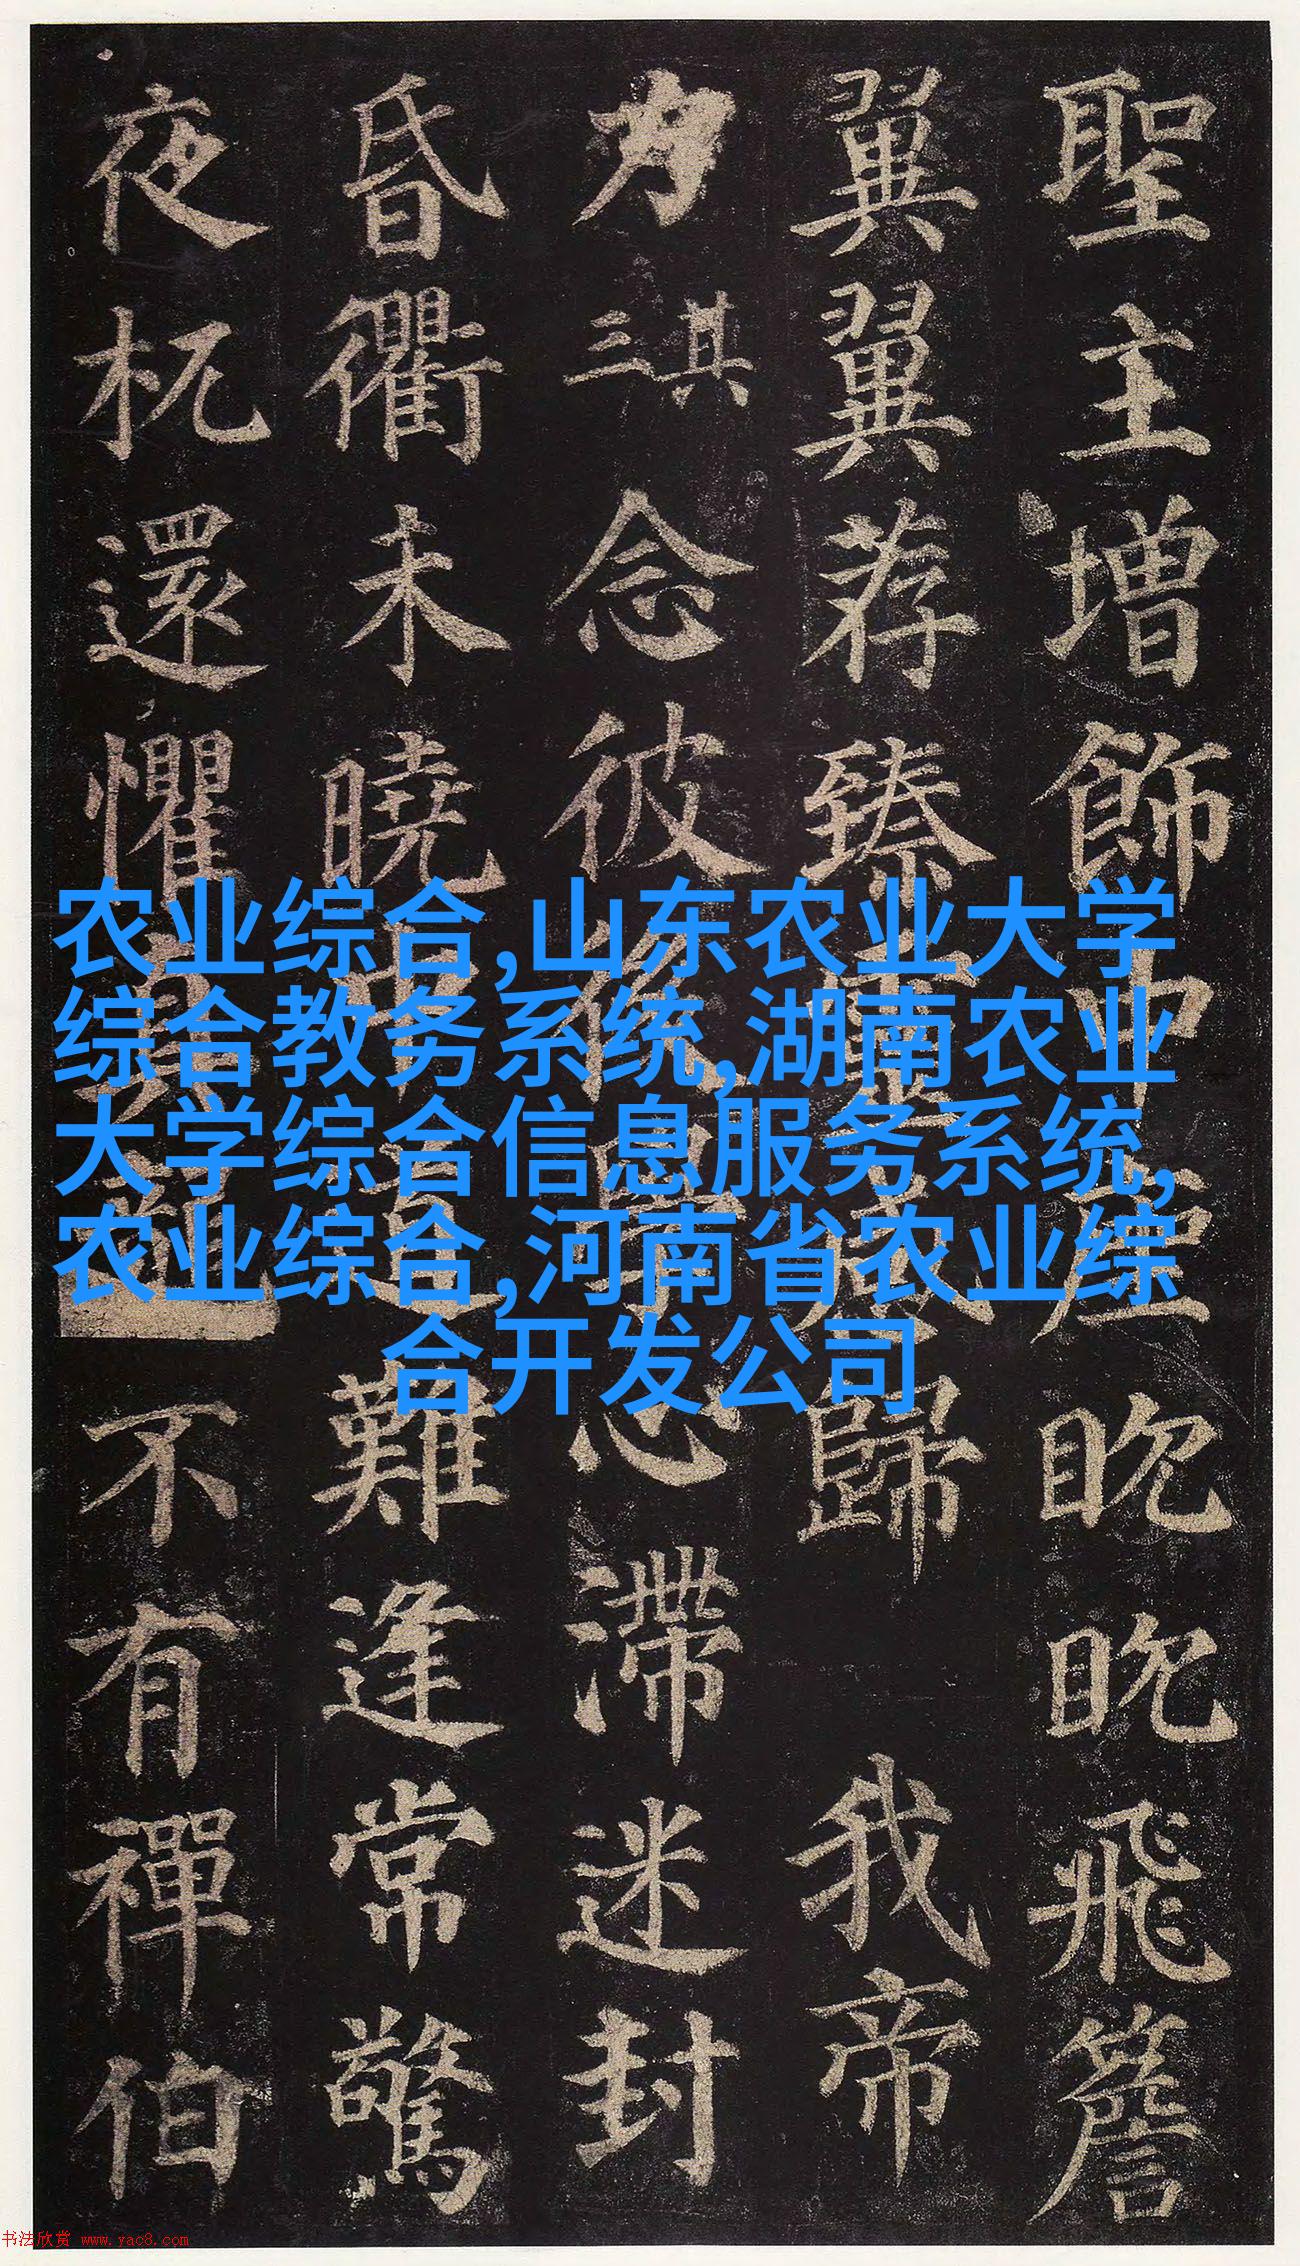 聖主增飾中座眈眈飛簷
翼翼荐臻靈感歸我帝
力其三念彼後學心滯迷封
昏衢未曉中道難逢常驚
夜杌還懼真龍不有禪伯
农业综合,山东农业大学
综合教务系统,湖南农业
大学综合信息服务系统,
农业综合,河南省农业综
合开发公司
书法欣赏 www.yac8.com